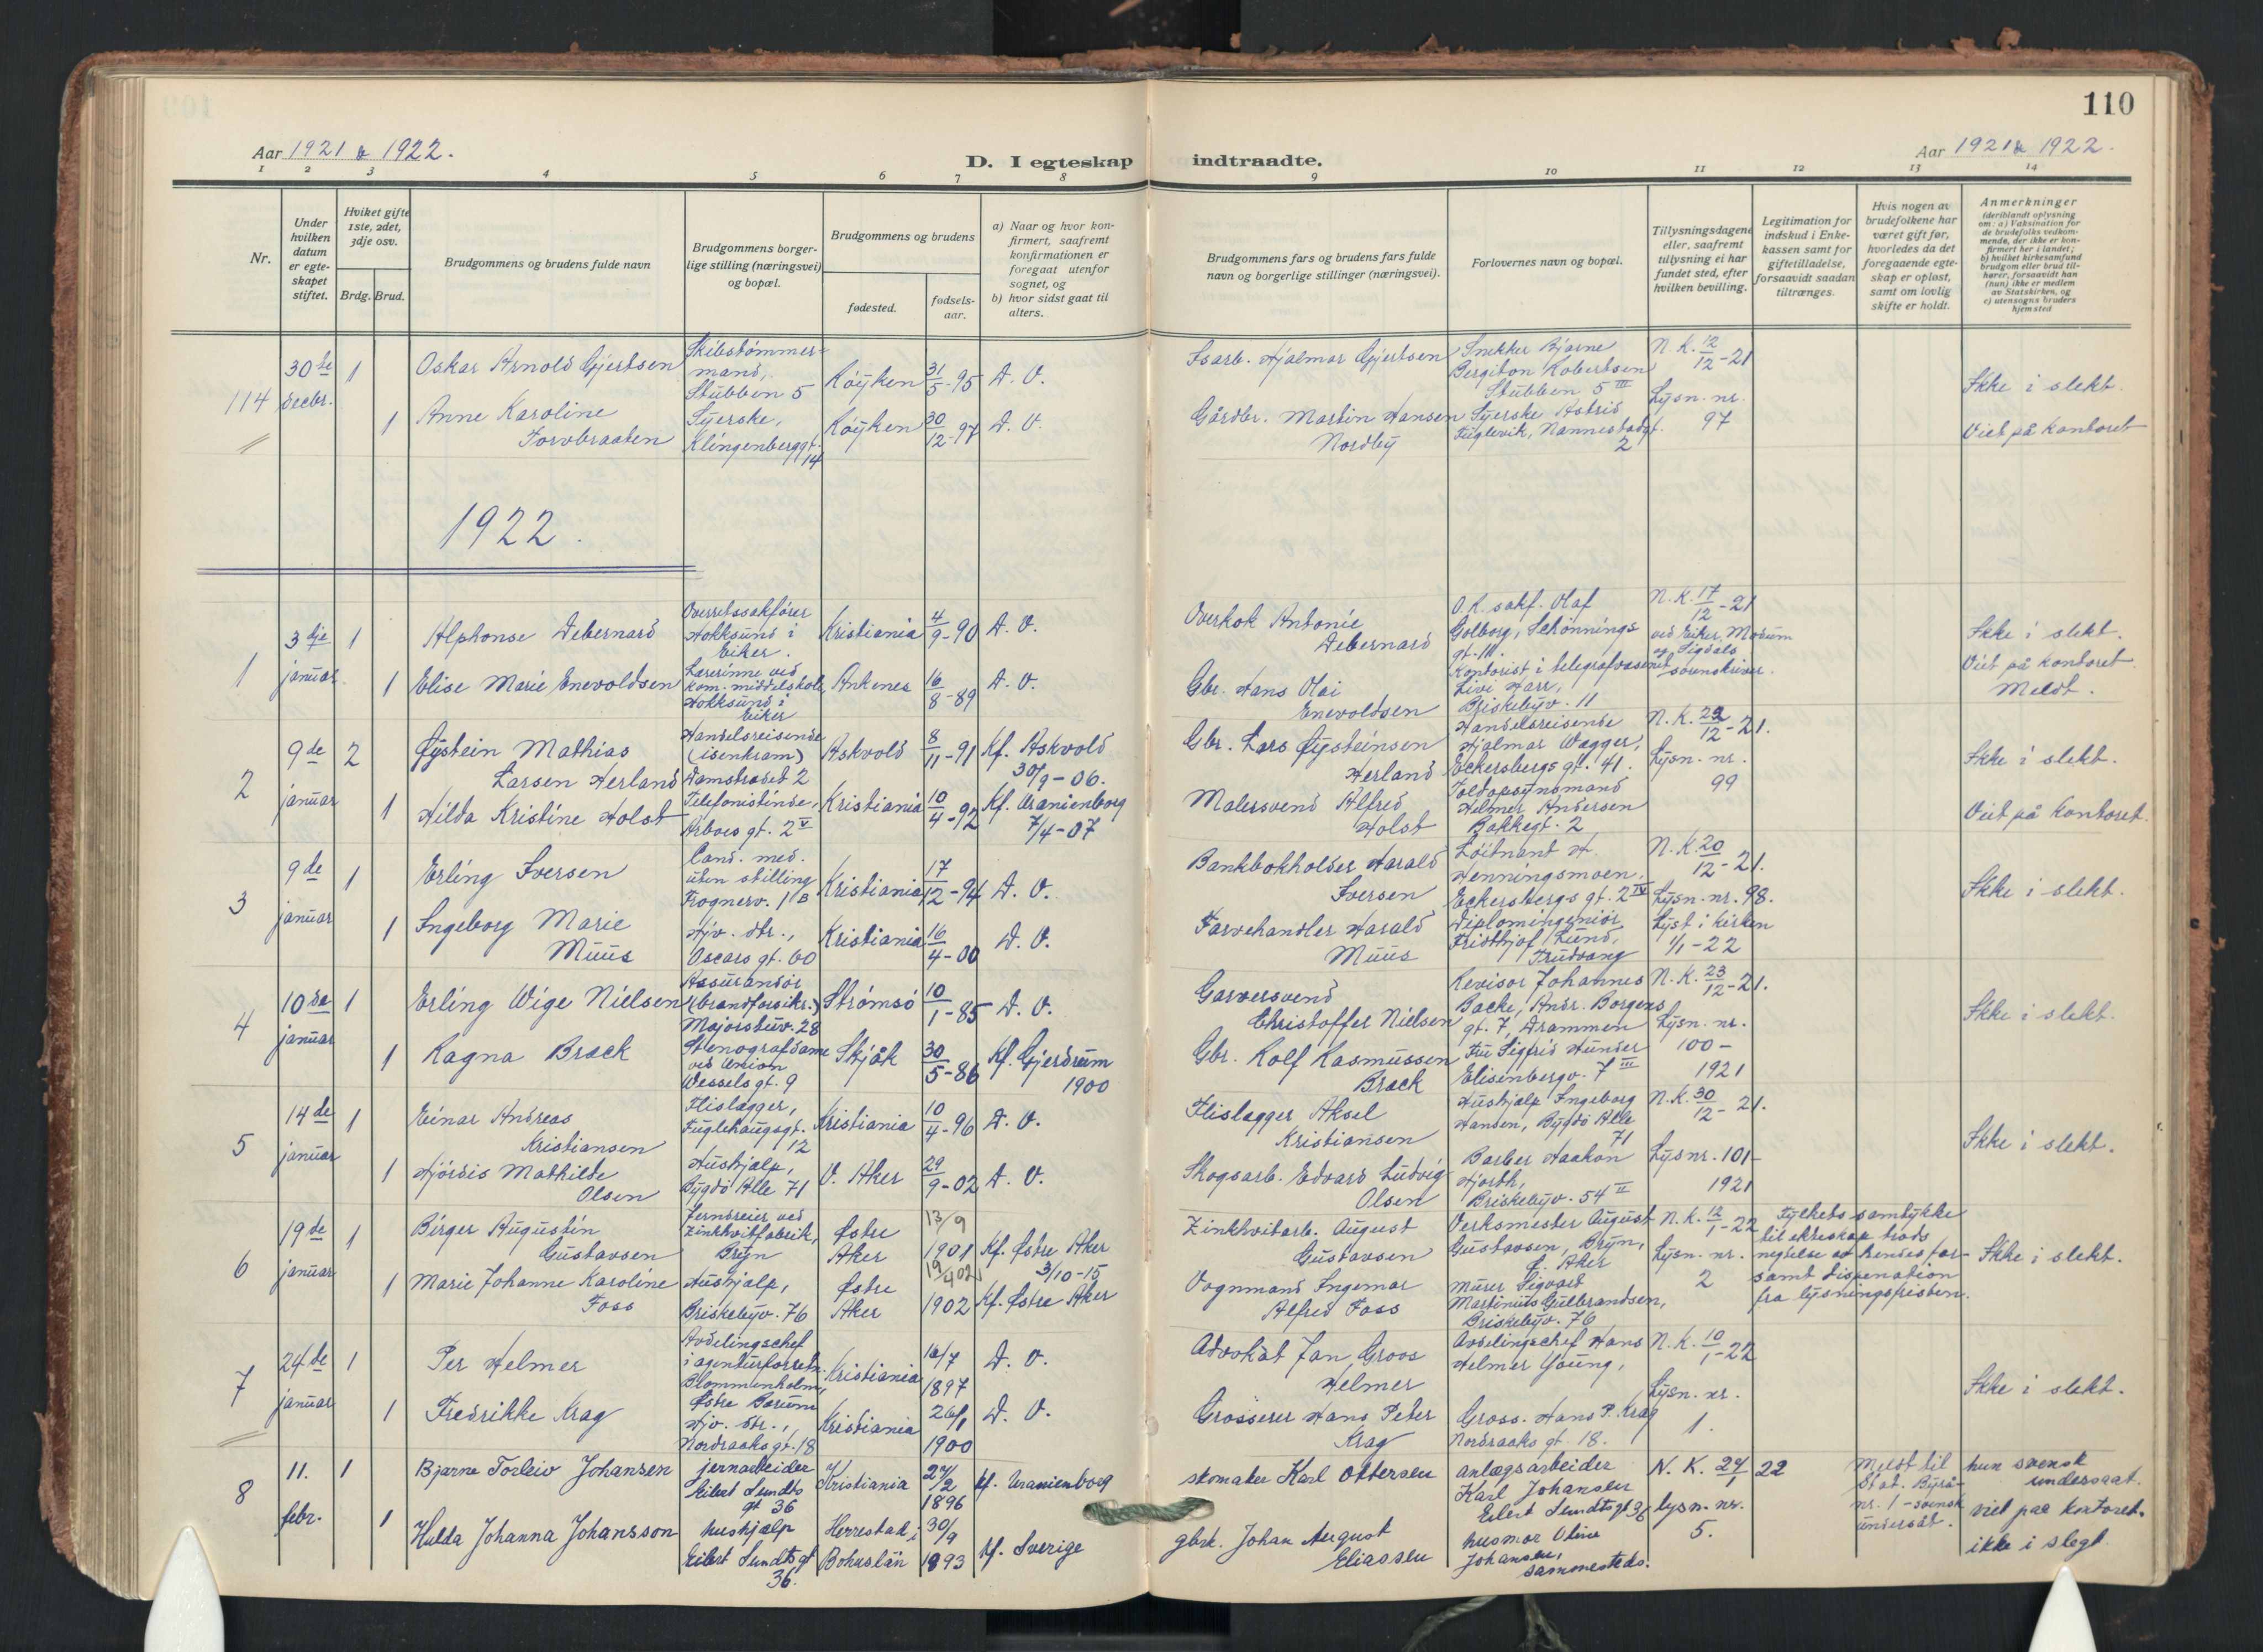 110
Aar 1921 & 1922.
D. I egteskap indtraadte.
Aar 1921 & 1922.
1 2 3 4 5 6 7 8 9 10 11 12 13 14
Nr.
Under hvilken datum er egteskapet stiftet.
Hviket gifte 1ste, 2det, 3dje osv.
Brdg. Brud.
Brudgommens og brudens fulde navn
Brudgommens borgerlige stilling (næringsvei) og bopæl.
Brudgommens og brudens
fødested.
fødselsaar.
a) Naar og hvor konfirmert, saafremt konfirmationen er foregaat utenfor sognet, og
b) hvor sidst gaat til alters.
Brudgommens fars og brudens fars fulde navn og borgerlige stillinger (næringsvei).
Forlovernes navn og bopæl.
Tillysningsdagene eller, saafremt tillysning ei har fundet sted, efter hvilken bevilling.
Legitimation for indskud i Enkekassen samt for giftetilladelse, forsaavidt saadan tiltrænges.
Hvis nogen av brudefolkene har været gift før, hvorledes da det foregaaende egteskap er opløst, samt om lovlig skifte er holdt.
Anmerkninger
(deriblandt oplysning om: a) Vaksination for de brudefolks vedkommende, der ikke er konfirmert her i landet; b) hvilket kirkesamfund brudgom eller brud tilhører, forsaavidt han (hun) ikke er medlem av Statskirken, og c) utensogns bruders hjemsted
114 30te decbr. 1 Oskar Arnold Gjertsen Skibstømmermand, Stubben 5 Røyken 31/5-95 D. V. Isarb. Hjalmar Gjertsen Snekker Bjarne Bergiton Robertsen Stubben 5 III N. K. 12/12-21 Lysn. nr. 97 Ikke i slekt.
1 Anne Karoline Torvbraaten Syerske, Klingenberggt. 14 Røyken 30/12-97 D. V. Gårdbr. Martin Hansen Nordby Syerske Astrid Fuglevik, Nannestadgt. 2 Viet på kontoret
1922.
1 3dje januar 1 Alphonse Debernard Overretssakfører Hokksund i Eiker. Kristiania 4/9-90 D. V. Overkok Antonie Debernard O.R. sakf. Olaf Golborg, Schønnings gt. 11. N. K. 17/12-21 ved Eiker, Modum og Sigdals sorenskriver. Ikke i slekt.
1 Elise Marie Enevoldsen Lærerinne ved kom. middelskole, Hokksund i Eiker Ankenes 16/8-89 D. V. Gbr. Hans Olai Enevoldsen Kontorist i telegrafvæsenet Livi Harr, Briskebyv. 11 Viet på kontoret Meldt.
2 9de januar 2 Øystein Mathias Larsen Herland Handelsreisende (isenkram) Damstrædet 2 Askvold 8/11-91 Kf. Askvold 30/9-06. Gbr. Lars Øysteinsen Herland Handelsreisende Hjalmar Wagger, Eckersbergs gt. 41. N. K. 22/12-21. Lysn. nr. 99 Ikke i slekt.
1 Hilda Kristine Holst Telefonistinde, Arbos gt. 2 V Kristiania 10/4-92 Kf. Uranienborg 7/4-07 Malersvend Alfred Holst Toldopsynsmand Helmer Andersen Bakkegt. 2 Viet på kontoret.
3 9de januar 1 Erling Iversen Cand. med. uten stilling Frognerv. 1 B Kristiania 17/12-94 D. V. Bankbokholder Harald Iversen Løitnant H. Henningsmoen, Eckersbergs gt. 2 IV N. K. 20/12-21. Lysn. nr. 98. Ikke i slekt.
1 Ingeborg Marie Muus Hjv. dtr., Oscars gt. 60 Kristiania 16/4-00 D. V. Farvehandler Harald Muus Diplomingeniør Fridthjof Lund, Frudvang Lyst i kirken 1/1-22
4 10de januar 1 Erling Wige Nielsen Assurandør (brandforsikr.) Majorstuv. 28 Strømsø 10/1-85 D. V. Garversvend Christoffer Nielsen Revisor Johannes Backe, Andr. Borgens gt. 7, Drammen N. K. 23/12-21. Lysn. nr. 100-1921 Ikke i slekt.
1 Ragna Bræck Stenografdame ved Union Wessels gt. 9 Skjåk 30/5-86 Kf. Gjerdrum 1900 Gbr. Rolf Rasmussen Bræck Fru Sigfrid Hunder Elisenbergv. 7 III
5 14de januar 1 Einar Andreas Kristiansen Flislægger, Fuglehaugsgt. 12 Kristiania 10/4-96 D. V. Flislægger Aksel Kristiansen Hushjælp Ingeborg Hansen, Bygdø Alle 71 N. K. 30/12-21. Lysnr. 101-1921 Ikke i slekt.
1 Hjørdis Mathilde Olsen Hushjælp, Bygdø Alle 71 V. Aker 29/9-02 D. V. Skogsarb. Edvard Ludvig Olsen Barber Haakon Hjorth, Briskebyv. 54 II
6 19de januar 1 Birger Augustin Gustavsen Jerndreier ved Zinkhvitfabrik, Bryn Østre Aker 13/9 1901 Kf. Østre Aker 3/10-15 Zinkhvitarb. August Gustavsen Verksmester August Gustavsen, Bryn, Ø. Aker N. K. 12/1-22 Lysn. nr. 2 Fylkets samtykke til ekteskap trods nektelse av hendes far samt dispensation fra lysningsfristen. Ikke i slekt.
1 Marie Johanne Karoline Foss Hushjælp, Briskebyv. 76 Østre Aker 19/4 02 1902 Kf. Østre Aker Vognmand Ingemar Alfred Foss Murer Sigvart Martinius Gulbrandsen, Briskebyv. 76
7 24de januar 1 Per Helmer Avdelingschef i agenturforretn. Blommenholm, Østre Bærum Kristiania 16/7 1897 D. V. Advokat Jan Groos Helmer Avdelingschef Hans Helmer Young, N. K. 10/1-22 Lysn. nr. 1. Ikke i slekt.
1 Fredrikke Krag Hjv. dtr., Nordraaks gt. 18 Kristiania 26/1 1900 D. V. Grosserer Hans Peter Krag Gross. Hans P. Krag Nordraaks gt. 18.
8 11. febr. 1 Bjarne Torleiv Johansen jernarbeider Eilert Sundts gt 36 Kristiania 27/2 1896 kf. Uranienborg skomaker Karl Ottersen anlægsarbeider Karl Johansen Eilert Sundts gt 36 N. K. 24/1 22 lysn. nr. 5. Meldt til Stat. Byrå nr. 1 - svensk undersåt. hun svensk undersaat.
1 Hulda Johanna Johansson hushjælp Eilert Sundts gt 36. Herrestad i Bohuslän 30/9 1893 kf. Sverige gbrk. Johan August Eliassen husmor Oline Johansen, sammesteds. viet paa kontoret. ikke i slegt.